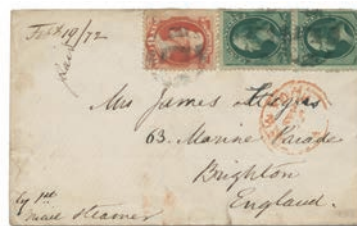 Feby 19/72
Paid
Mrs James Ingles
63. Marine Parade
Brighton
England.
by 1st
mail steamer